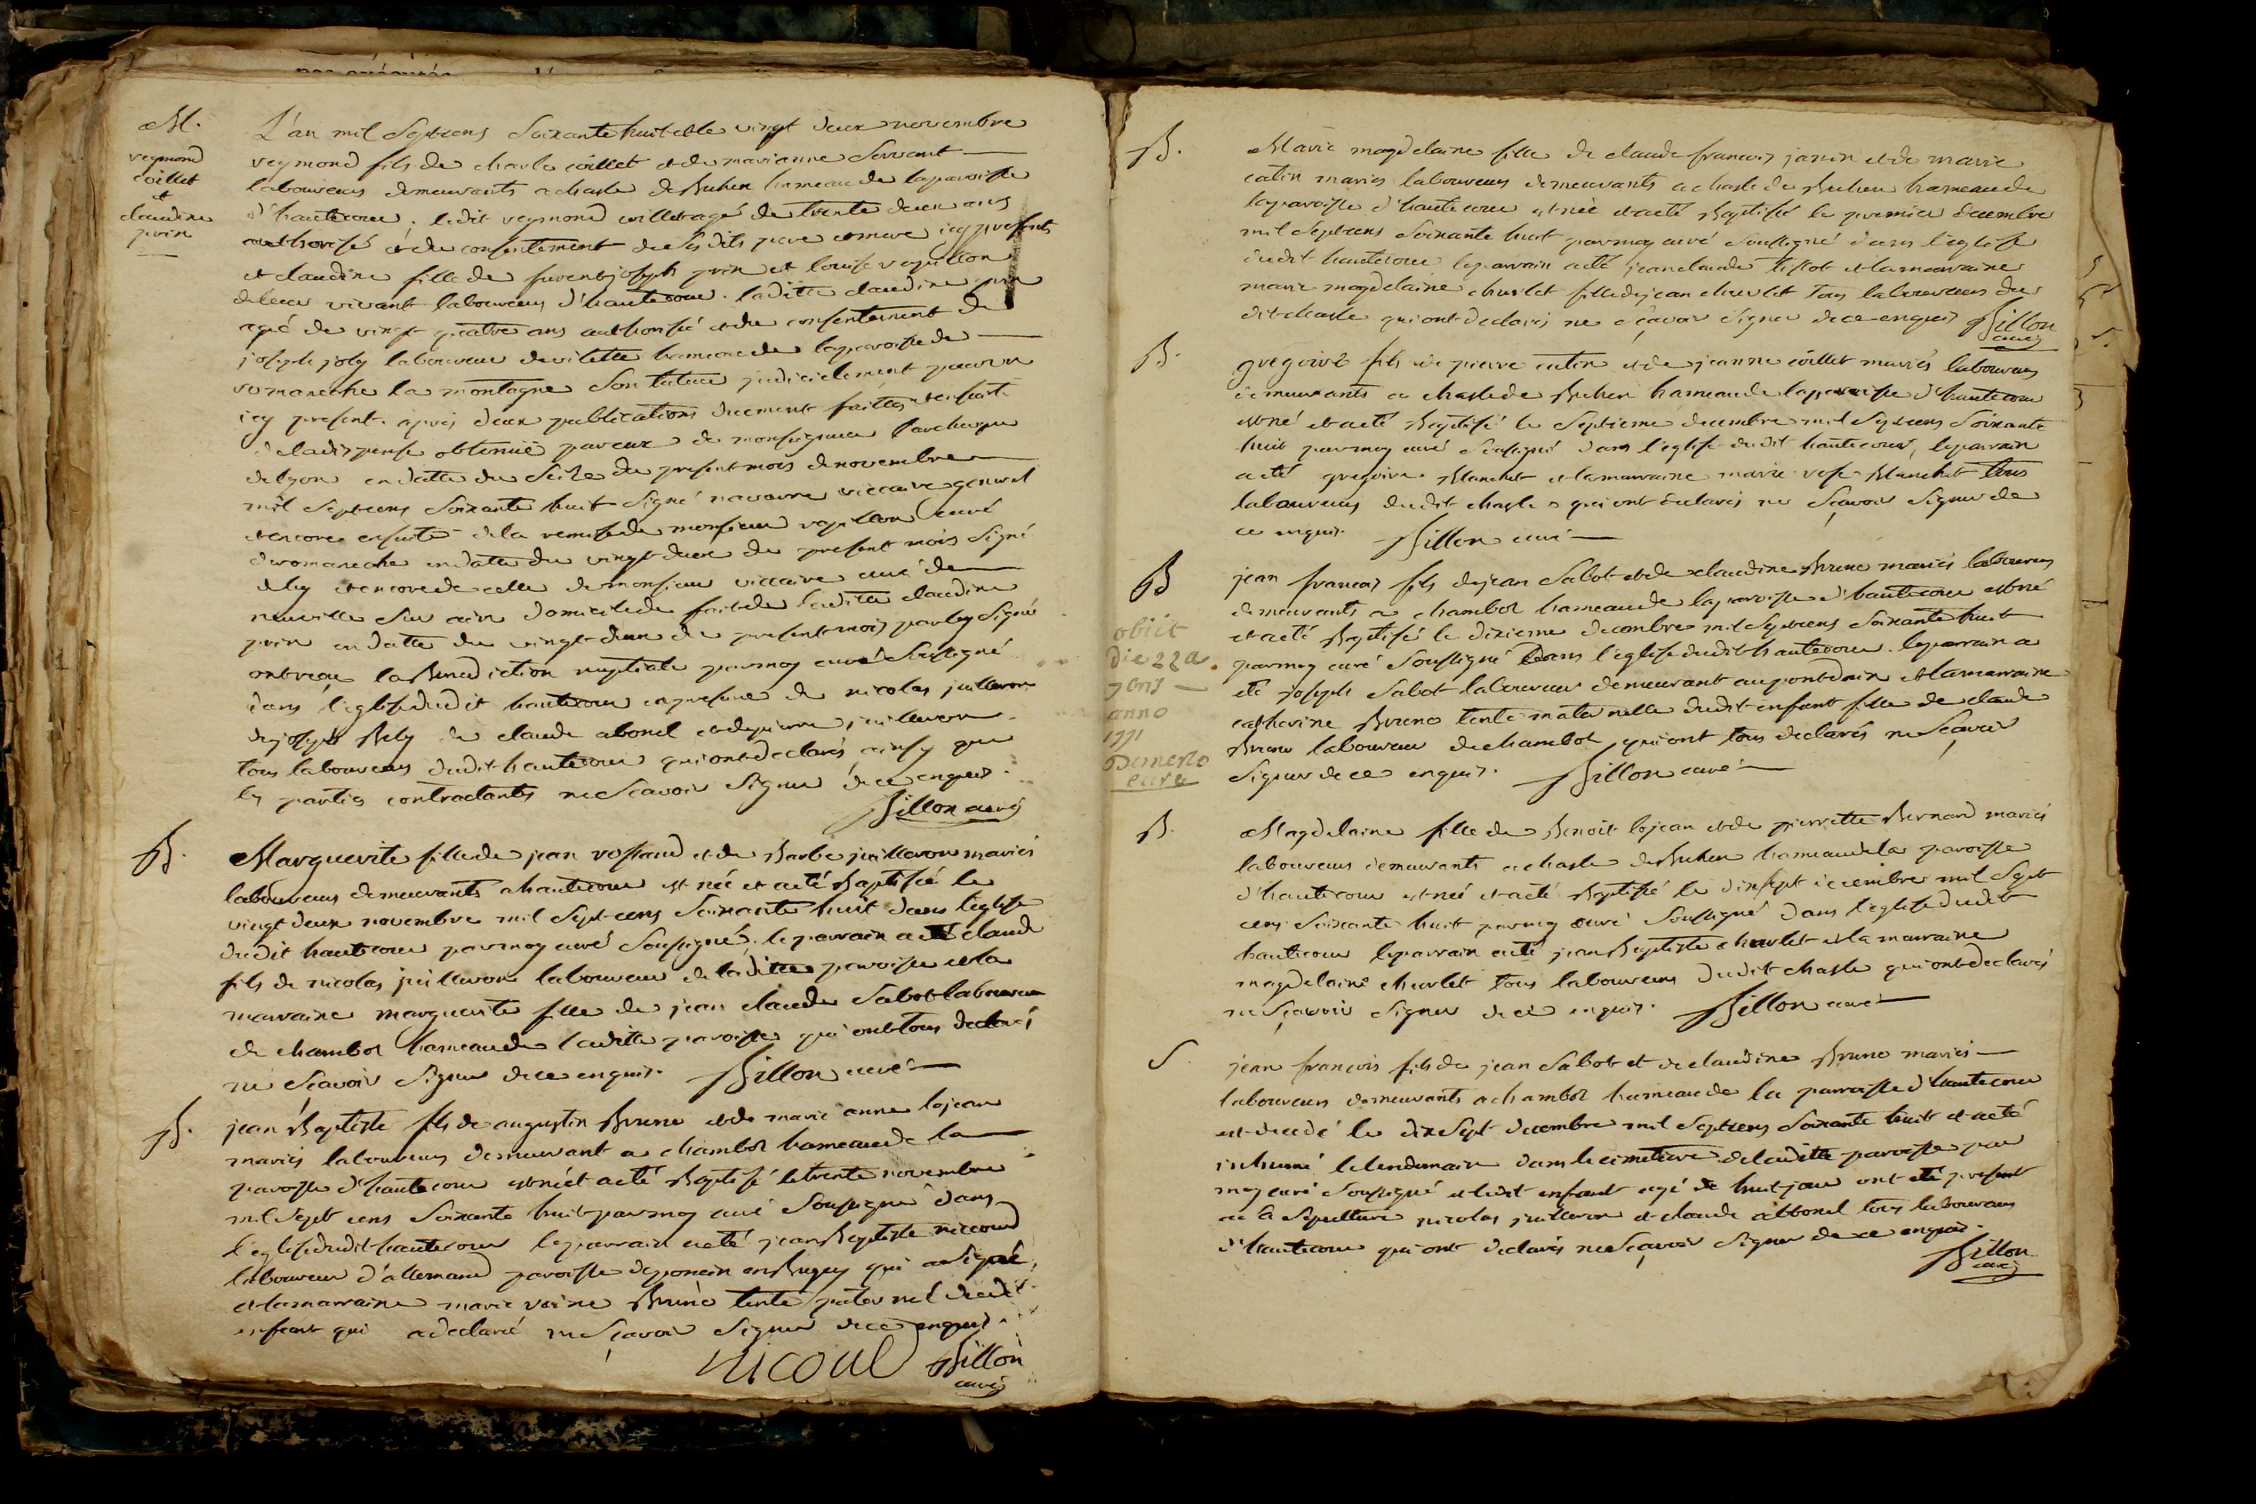 M.
reymond
coillet
et
claudine
prin
L'an mil Septcens Soixante huit et le vingt deux novembre
reymond fils de charle coillet et de marianne Servant
laboureurs demeurants a chasle de Buhen hameau de la paroisse
d'hautecour, ledit reymond coillet agé de trente deux ans
authorisé et de consentement de Ses dits pere et mere icy presents
et claudine fille de furent joseph prin et louise vepillon
de leur vivant laboureurs d'hautecour. laditte claudine prin
agé de vingt quatre ans authorisé et du consentement de
joseph joly laboureur de vilette hameau de la paroisse de
romaneche la montagne Son tuteur judiciélement pourvu
icy present. après deux publications duement faittes ensuite
de la dispense obtenuë par eux de monseigneur l'archevque
de lyon en datte du Seize du present mois de novembre
mil Septcens Soixante huit Signé navarre viccaire general
et encore ensuite de la remise de monsieur vepillon curé
de romaneche en datte du vingt deux du present mois Signé
de luy et encore de celle de monsieur viccaire curé de
neuville Sur ain domicile de fait de laditte claudine
prin en datte du vingt deux du present mois par luy Signé
ont reçu la Benediction nuptiale par moy curé Soussigné
dans l'eglise dudit hautecour en presence de nicolas juilleron
de joseph Bely de claude abonel et de pierre juilleron
tous laboureurs dudit hautecour qui ont declarés ainsy que
les parties contractants ne Sçavoir Signer de ce enquis.
Billon curé
B.
Marguerite fille de jean rostaud et de Barbe juilleron mariés
laboureurs demeurants a hautecour est née et a eté Baptisée le
vingt deux novembre mil Sept cens Soixante huit dans l'eglise
dudit hautecour par moy curé Soussigné, le parrain a eté claude
fils de nicolas juilleron laboureur de laditte paroisse et la
marraine marguerite fille de jean claude Sabot laboureur
de chambol hameau de laditte paroisse qui ont tous declarés
ne Sçavoir Signer de ce enquis. Billon curé
B.
jean Baptiste fils de augustin Brune et de marie anne lojean
mariés laboureurs demeurant a chambol hameau de la
paroisse d'hautecour est né et a eté Baptisé le trente novembre
mil Sept cens Soixante huit par moy curé Soussigné dans
l'eglise dudit hautecour le parrain a eté jean Baptiste nicoud
laboureur d'allemand paroisse de poncin en Bugey qui a Signé
et la marraine marie reine Brune tente paternel dudit
enfant qui a declaré ne Sçavoir Signer de ce enquis.
nicoul Billon
curé
B.
Marie magdelaine fille de claude francois janin et de marie
catin mariés laboureurs demeurants a chasle de Buhen hameau de
la paroisse d'hautecour est née et a eté Baptisée le premier decembre
mil Septcens Soixante huit par moy curé Soussigné dans l'eglise
dudit hautecour le parrain a eté jean claude tissot et la marraine
marie magdelaine churlet fille de jean churlet tous laboureurs du
dit chasle qui ont declarés ne sçavoir Signer de ce enquis Billon
curé
B.
gregoire fils de pierre catin et de jeanne coillet mariés laboureurs
demeurants a chasle de Buhen hameau de la paroisse d'hautecour
est né et a eté Baptisé le Septieme decembre mil Septcens Soixante
huit par moy curé Soussigné dans l'eglise dudit hautecour, le parrain
a eté gregoire Blanchet et la marraine marie rose Blanchet tous
laboureurs dudit chasle qui ont declarés ne Sçavoir Signer de
ce enquis. Billon curé
B
obiit
die 22a
7bris
anno
1771
curé
jean francois fils de jean Sabot et de claudine Brune mariés laboureurs
demeurants a chambol hameau de la paroisse d'hautecour est né
et a eté Baptisé le dixieme decembre mil Septcens Soixante huit
par moy curé Soussigné dans l'eglise dudit hautecour. le parrain a
eté joseph Sabot laboureur demeurant au pont dain et la marraine
catherine Brune tente maternelle dudit enfant fille de claude
Brune laboureur de chambol, qui ont tous declarés ne Sçavoir
Signer de ce enquis. Billon curé
B.
Magdelaine fille de Benoit lojean et de pierrette Bernard mariés
laboureurs demeurants a chasle de Buhen hameau de la paroisse
d'hautecour est neé et a eté Baptisée le dixsept decembre mil Sept
cens Soixante huit par moy curé Soussigné dans l'eglise dudit
hautecour le parrain a eté jean Baptiste churlet et la marraine
magdelaine churlet tous laboureurs dudit chasle qui ont declarés
ne Sçavoir Signer de ce enquis. Billon curé
S.
jean francois fils de jean Sabot et de claudine Brune mariés
laboureurs demeurants a chambol hameau de la parroisse d'hautecour
est decedé le dixSept decembre mil Septcens Soixante huit et a eté
inhumé le lendemain dans le cimetiere de laditte paroisse par
moy curé Soussigné et ledit enfant agé de huit jour ont eté present
a sa Sepulture nicolas juilleron et claude abbonel tous laboureurs
d'hautecour qui ont declarés ne Sçavoir Signer de ce enquis.
Billon
curé